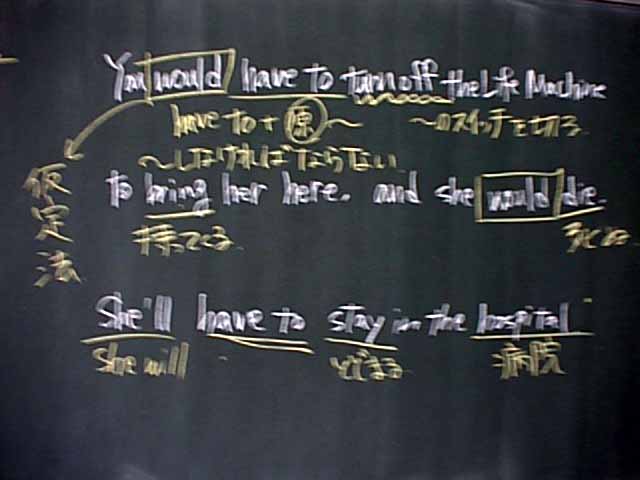 You would have to turn off the Life Machine
have to + 原 ～ ～のスイッチを切る
～しなければならない
to bring her here. and she would die.
持ってくる 死ぬ
仮定法
She'll have to stay in the hospital
She will とどまる 病院